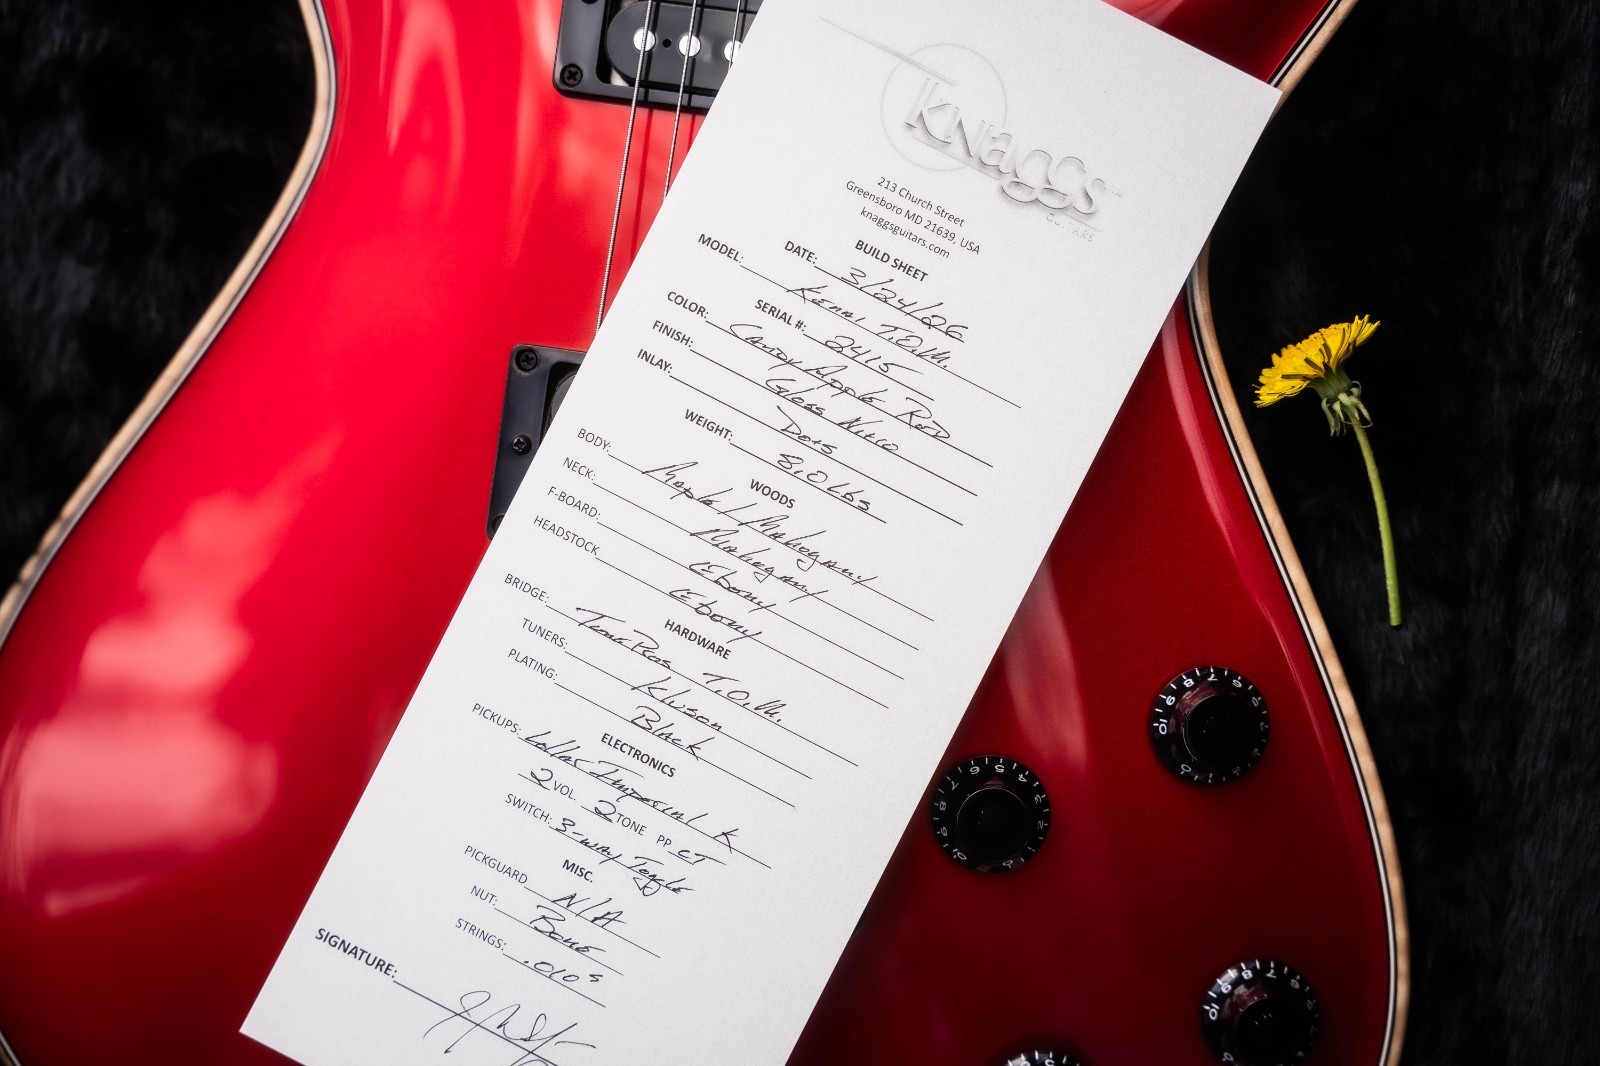 Knaggs
GUITARS
213 Church Street
Greensboro MD 21639, USA
knaggsguitars.com
BUILD SHEET
DATE: 3/24/26
MODEL: Kenai T.O.M.
SERIAL #: 2415
COLOR: Candy Apple Red
FINISH: Gloss Nitro
INLAY: Dots
WEIGHT: 8.0 Lbs
WOODS
BODY: Maple / Mahogany
NECK: Mahogany
F-BOARD: Ebony
HEADSTOCK Ebony
HARDWARE
BRIDGE: TonePros T.O.M.
TUNERS: Kluson
PLATING: Black
ELECTRONICS
PICKUPS: Lollar Imperial K
2 VOL. 2 TONE PP CT
SWITCH: 3-way Toggle
MISC.
PICKGUARD N/A
NUT: Bone
STRINGS: .010s
SIGNATURE: